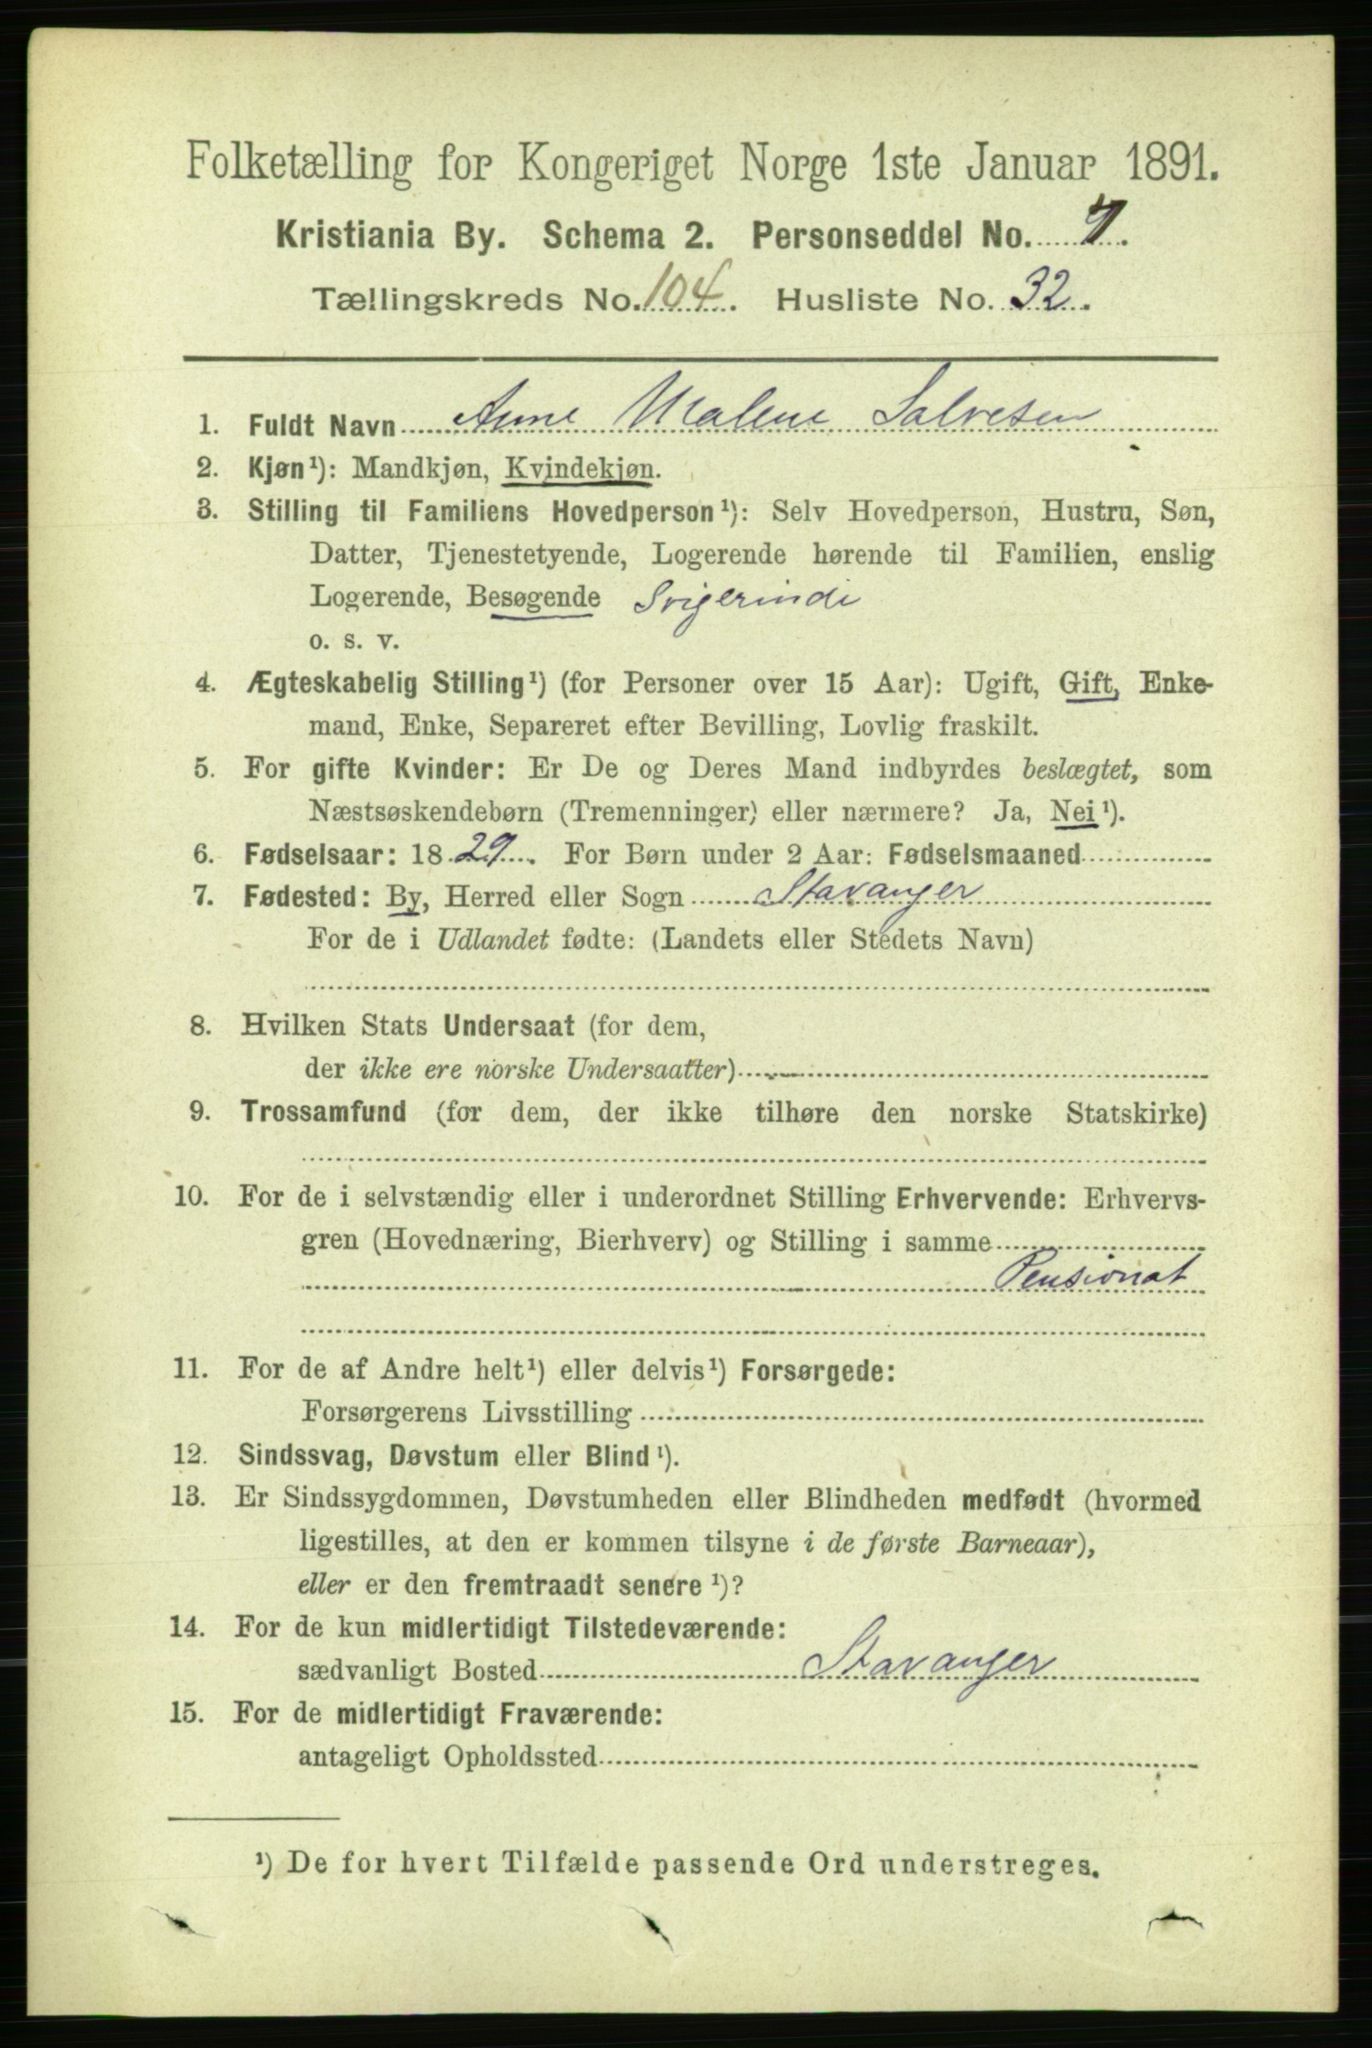 Folketælling for Kongeriget Norge 1ste Januar 1891.
Kristiania By. Schema 2. Personseddel No. 7.
Tællingskreds No. 104. Husliste No. 32.
1. Fuldt Navn Anne Malene Salvesen
2. Kjøn¹): Mandkjøn, Kvindekjøn.
3. Stilling til Familiens Hovedperson¹): Selv Hovedperson, Hustru, Søn,
Datter, Tjenestetyende, Logerende hørende til Familien, enslig
Logerende, Besøgende Svigerinde
o. s. v.
4. Ægteskabelig Stilling¹) (for Personer over 15 Aar): Ugift, Gift, Enke-
mand, Enke, Separeret efter Bevilling, Lovlig fraskilt.
5. For gifte Kvinder: Er De og Deres Mand indbyrdes beslægtet, som
Næstsøskendebørn (Tremenninger) eller nærmere? Ja, Nei¹).
6. Fødselsaar: 1829. For Børn under 2 Aar: Fødselsmaaned
7. Fødested: By, Herred eller Sogn Stavanger
For de i Udlandet fødte: (Landets eller Stedets Navn)
8. Hvilken Stats Undersaat (for dem,
der ikke ere norske Undersaatter)
9. Trossamfund (for dem, der ikke tilhøre den norske Statskirke)
10. For de i selvstændig eller i underordnet Stilling Erhvervende: Erhvervs-
gren (Hovednæring, Bierhverv) og Stilling i samme
Pensionat
11. For de af Andre helt¹) eller delvis¹) Forsørgede:
Forsørgerens Livsstilling
12. Sindssvag, Døvstum eller Blind¹).
13. Er Sindssygdommen, Døvstumheden eller Blindheden medfødt (hvormed
ligestilles, at den er kommen tilsyne i de første Barneaar),
eller er den fremtraadt senere¹)?
14. For de kun midlertidigt Tilstedeværende:
sædvanligt Bosted Stavanger
15. For de midlertidigt Fraværende:
antageligt Opholdssted
¹) De for hvert Tilfælde passende Ord understreges.